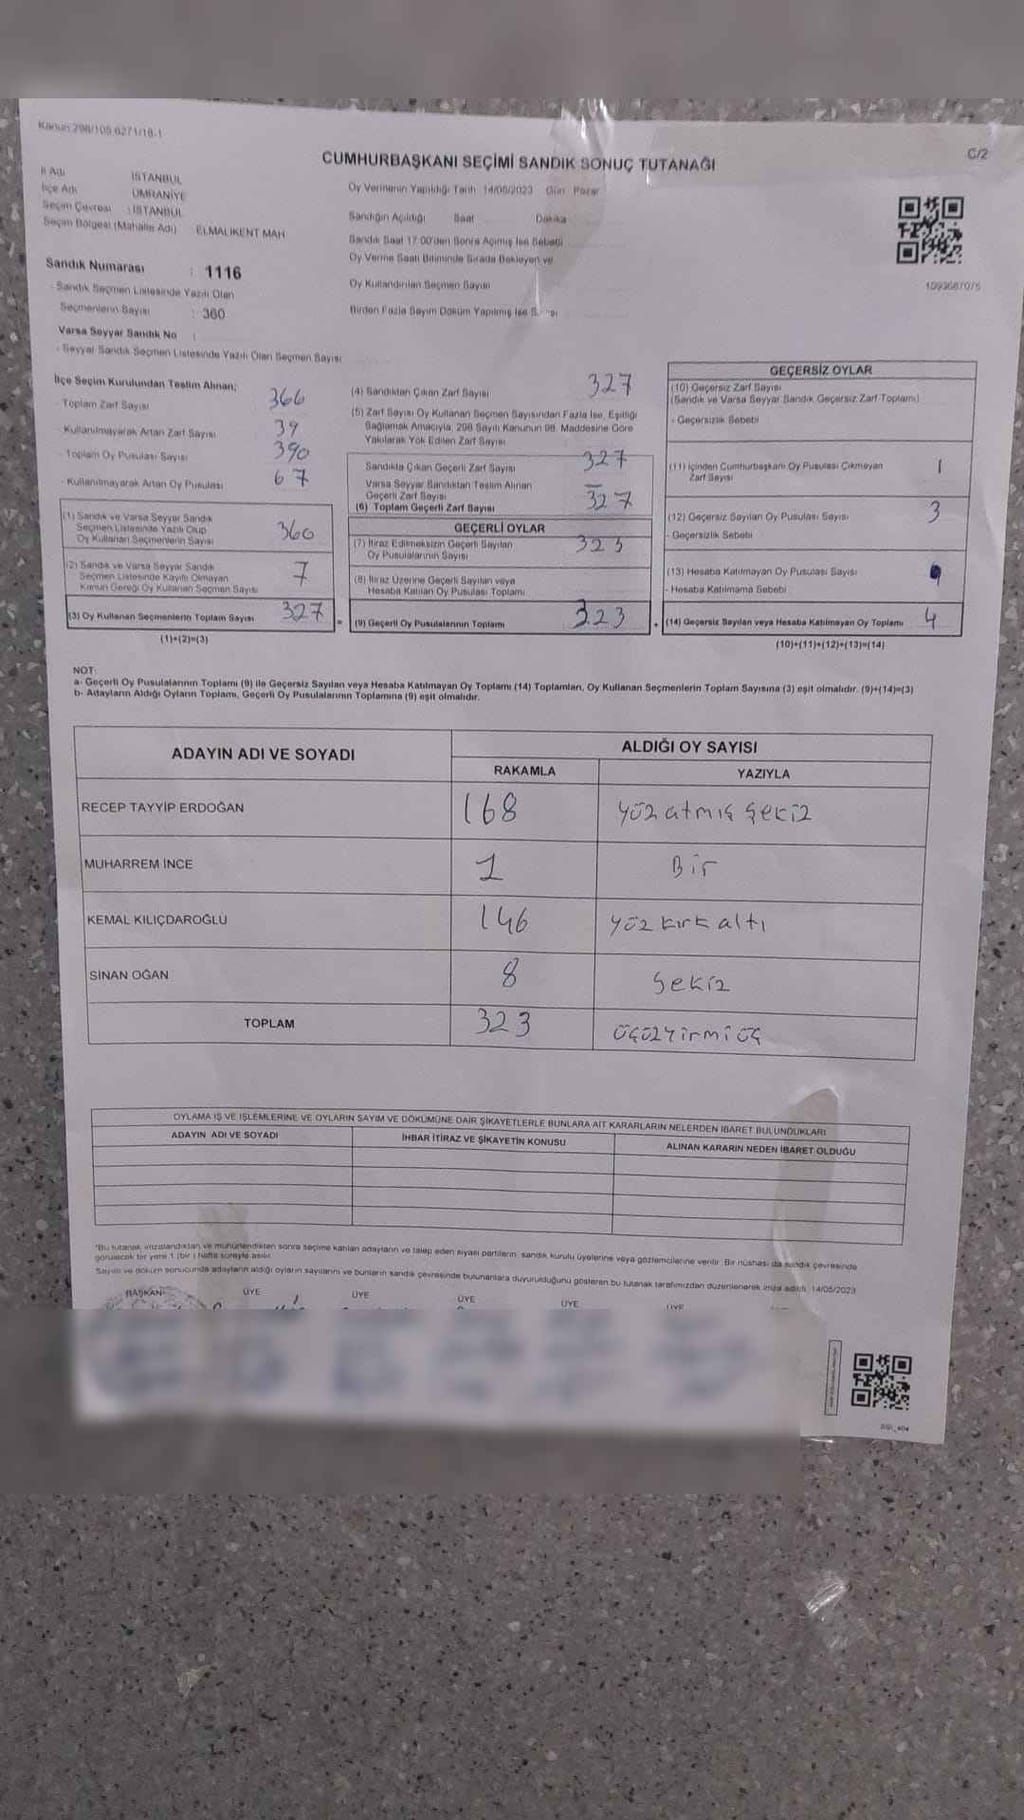 Kanun 298/105,6271/18-1
C/2
CUMHURBAŞKANI SEÇİMİ SANDIK SONUÇ TUTANAĞI
İl Adı İSTANBUL
İlçe Adı ÜMRANİYE
Seçim Çevresi : İSTANBUL
Seçim Bölgesi (Mahalle Adı) ELMALIKENT MAH
Sandık Numarası : 1116
- Sandık Seçmen Listesinde Yazılı Olan
Seçmenlerin Sayısı : 360
Varsa Seyyar Sandık No :
- Seyyar Sandık Seçmen Listesinde Yazılı Olan Seçmen Sayısı
Oy Vermenin Yapıldığı Tarih 14/05/2023 Gün Pazar
Sandığın Açıldığı Saat Dakika
Sandık Saat 17:00'den Sonra Açılmış İse Sebebi
Oy Verme Saati Bitiminde Sırada Bekleyen ve
Oy Kullandırılan Seçmen Sayısı
Birden Fazla Sayım Döküm Yapılmış İse
1093687075
İlçe Seçim Kurulundan Teslim Alınan;
- Toplam Zarf Sayısı 366
- Kullanılmayarak Artan Zarf Sayısı 39
- Toplam Oy Pusulası Sayısı 390
- Kullanılmayarak Artan Oy Pusulası 67
(1) Sandık ve Varsa Seyyar Sandık
Seçmen Listesinde Yazılı Olup
Oy Kullanan Seçmenlerin Sayısı 360
(2) Sandık ve Varsa Seyyar Sandık
Seçmen Listesinde Kayıtlı Olmayan
Kanun Gereği Oy Kullanan Seçmen Sayısı 7
(3) Oy Kullanan Seçmenlerin Toplam Sayısı 327
(1)+(2)=(3)
(4) Sandıktan Çıkan Zarf Sayısı 327
(5) Zarf Sayısı Oy Kullanan Seçmen Sayısından Fazla İse, Eşitliği
Sağlamak Amacıyla, 298 Sayılı Kanunun 98. Maddesine Göre
Yakılarak Yok Edilen Zarf Sayısı
Sandıkta Çıkan Geçerli Zarf Sayısı 327
Varsa Seyyar Sandıktan Teslim Alınan
Geçerli Zarf Sayısı –
(6) Toplam Geçerli Zarf Sayısı 327
GEÇERLİ OYLAR
(7) İtiraz Edilmeksizin Geçerli Sayılan
Oy Pusulalarının Sayısı 323
(8) İtiraz Üzerine Geçerli Sayılan veya
Hesaba Katılan Oy Pusulası Toplamı
(9) Geçerli Oy Pusulalarının Toplamı 323
GEÇERSİZ OYLAR
(10) Geçersiz Zarf Sayısı
(Sandık ve Varsa Seyyar Sandık Geçersiz Zarf Toplamı)
- Geçersizlik Sebebi
(11) İçinden Cumhurbaşkanı Oy Pusulası Çıkmayan
Zarf Sayısı 1
(12) Geçersiz Sayılan Oy Pusulası Sayısı 3
- Geçersizlik Sebebi
(13) Hesaba Katılmayan Oy Pusulası Sayısı
- Hesaba Katılmama Sebebi
(14) Geçersiz Sayılan veya Hesaba Katılmayan Oy Toplamı 4
(10)+(11)+(12)+(13)=(14)
NOT:
a- Geçerli Oy Pusulalarının Toplamı (9) ile Geçersiz Sayılan veya Hesaba Katılmayan Oy Toplamı (14) Toplamları, Oy Kullanan Seçmenlerin Toplam Sayısına (3) eşit olmalıdır. (9)+(14)=(3)
b- Adayların Aldığı Oyların Toplamı, Geçerli Oy Pusulalarının Toplamına (9) eşit olmalıdır.
ADAYIN ADI VE SOYADI ALDIĞI OY SAYISI
RAKAMLA YAZIYLA
RECEP TAYYİP ERDOĞAN 168 yüz atmış şekiz
MUHARREM İNCE 1 Bir
KEMAL KILIÇDAROĞLU 146 yüz kırk altı
SİNAN OĞAN 8 Şekiz
TOPLAM 323 üçüzyirmi üç
OYLAMA İŞ VE İŞLEMLERİNE VE OYLARIN SAYIM VE DÖKÜMÜNE DAİR ŞİKAYETLERLE BUNLARA AİT KARARLARIN NELERDEN İBARET BULUNDUKLARI
ADAYIN ADI VE SOYADI İHBAR İTİRAZ VE ŞİKAYETİN KONUSU ALINAN KARARIN NEDEN İBARET OLDUĞU
*Bu tutanak imzalandıktan ve mühürlendikten sonra seçime katılan adayların ve talep eden siyasi partilerin sandık kurulu üyelerine veya gözlemcilerine verilir. Bir nüshası da sandık çevresinde
görülecek bir yere 1 (bir) hafta süreyle asılır.
Sayım ve döküm sonucunda adayların aldığı oyların sayılarını ve bunların sandık çevresinde bulunanlara duyurulduğunu gösteren bu tutanak tarafımızdan düzenlenerek imza edildi. 14/05/2023
BAŞKAN ÜYE ÜYE ÜYE ÜYE ÜYE